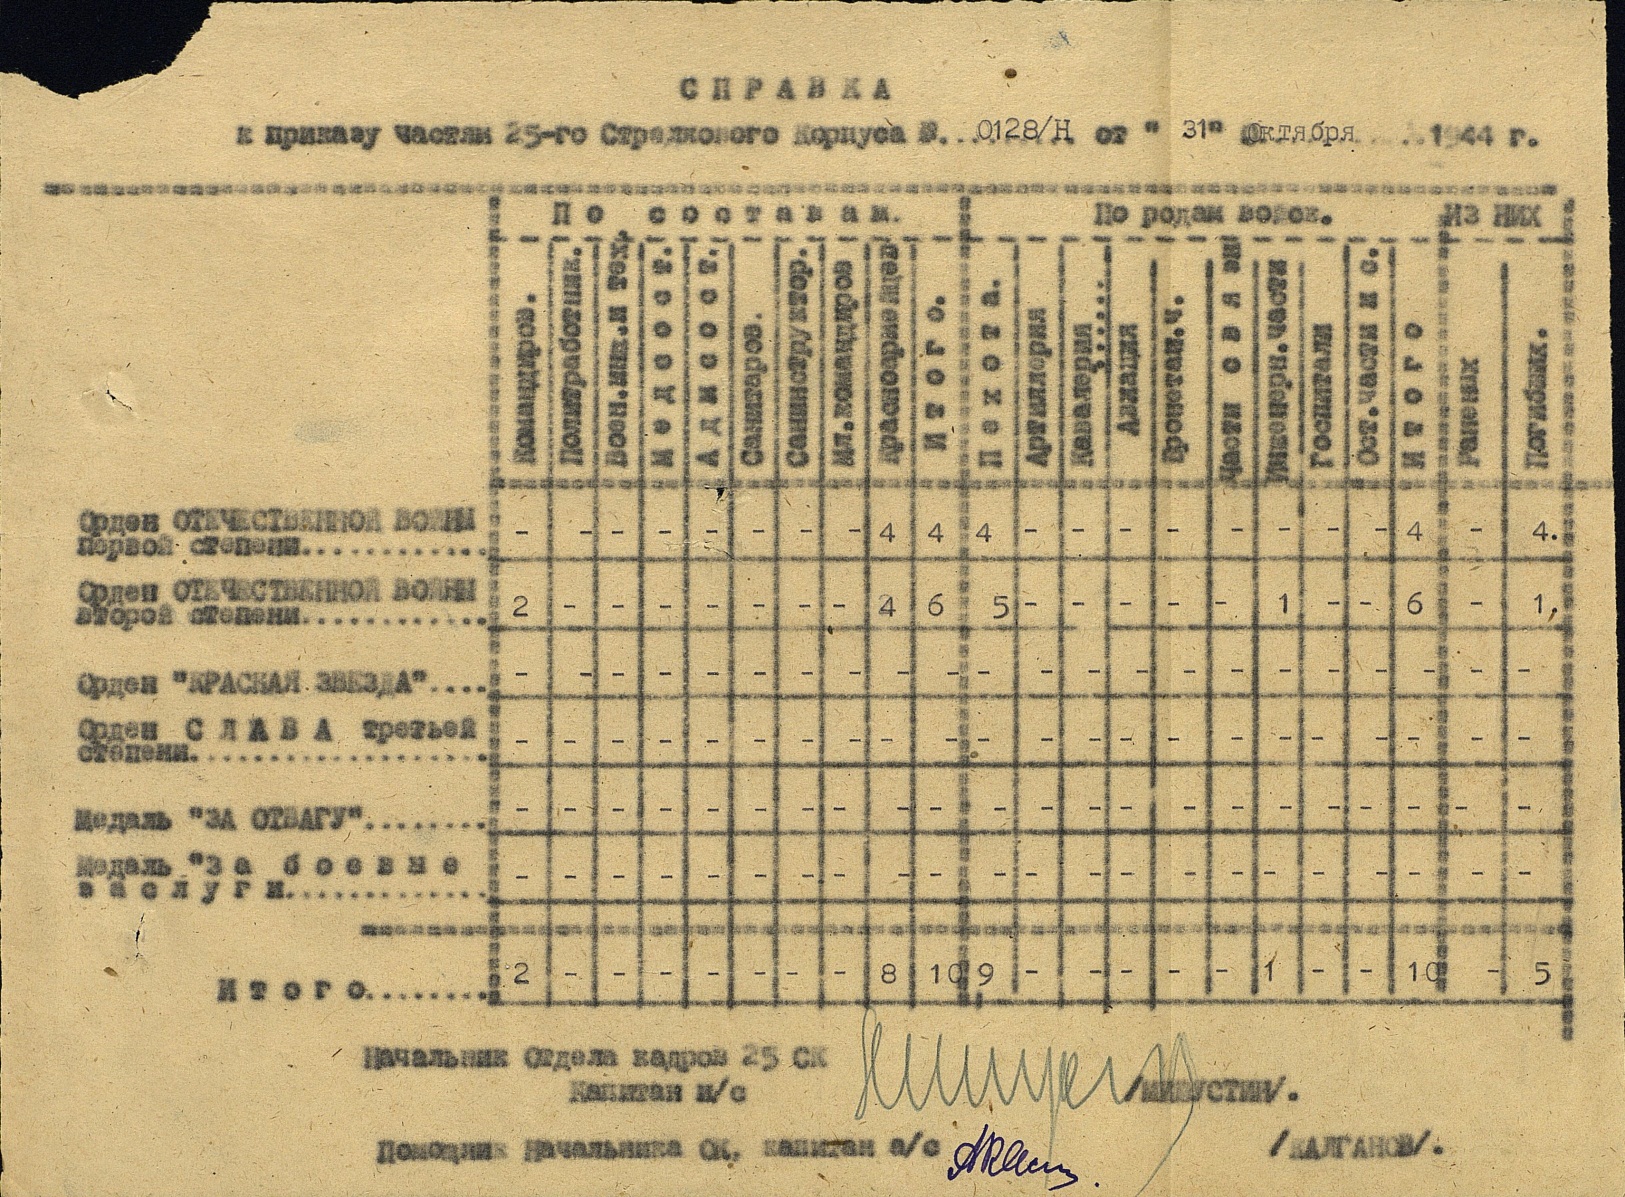 СПРАВКА
к приказу частям 25-го Стрелкового Корпуса №...0128/Н от "31" Октября.....1944 г.
По составам. По родам войск. Из НИХ
Командиров. Политработник. Воен.инж.и тех. Медсост. Адмсост. Санитаров. Санинструктор. Мл.командиров Красноармейцев Итого. Пехота. Артиллерия Кавалерия Авиация Бронетан.ч. Части связи Инженерн.части Госпитали Ост.части и с. Итого Раненых Погибших.
Орден ОТЕЧЕСТВЕННОЙ ВОЙНЫ - - - - - - - - 4 4 4 - - - - - - - - 4 - 4.
первой степени............
Орден ОТЕЧЕСТВЕННОЙ ВОЙНЫ 2 - - - - - - - 4 6 5 - - - - - 1 - - 6 - 1.
второй степени............
Орден "КРАСНАЯ ЗВЕЗДА".... - - - - - - - - - - - - - - - - - - - - - -
Орден СЛАВА третьей
степени................... - - - - - - - - - - - - - - - - - - - - - -
Медаль "ЗА ОТВАГУ"........ - - - - - - - - - - - - - - - - - - - - - -
Медаль "За боевые
заслуги............. - - - - - - - - - - - - - - - - - - - - - -
Итого........ 2 - - - - - - - 8 10 9 - - - - - 1 - - 10 - 5
Начальник Отдела кадров 25 СК
Капитан и/с /МИШУСТИН/.
Помощник Начальника ОК, капитан а/с /КАЛГАНОВ/.